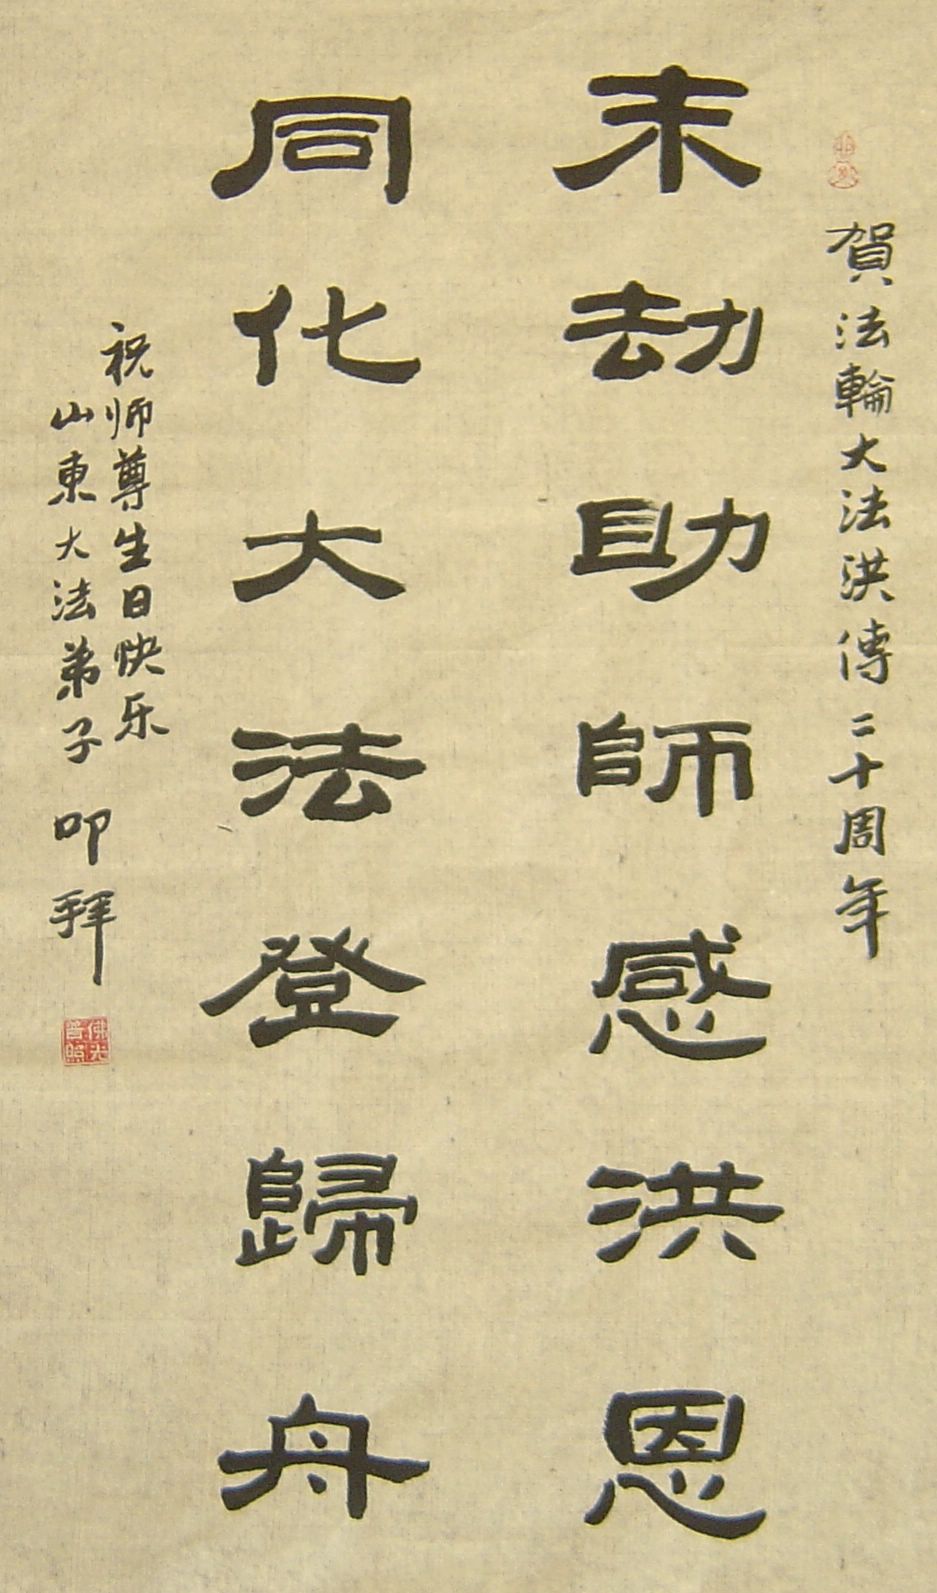 賀法輪大法洪傳二十周年
末劫助師感洪恩
同化大法登歸舟
祝师尊生日快乐
山東大法弟子 叩拜
佛光普照